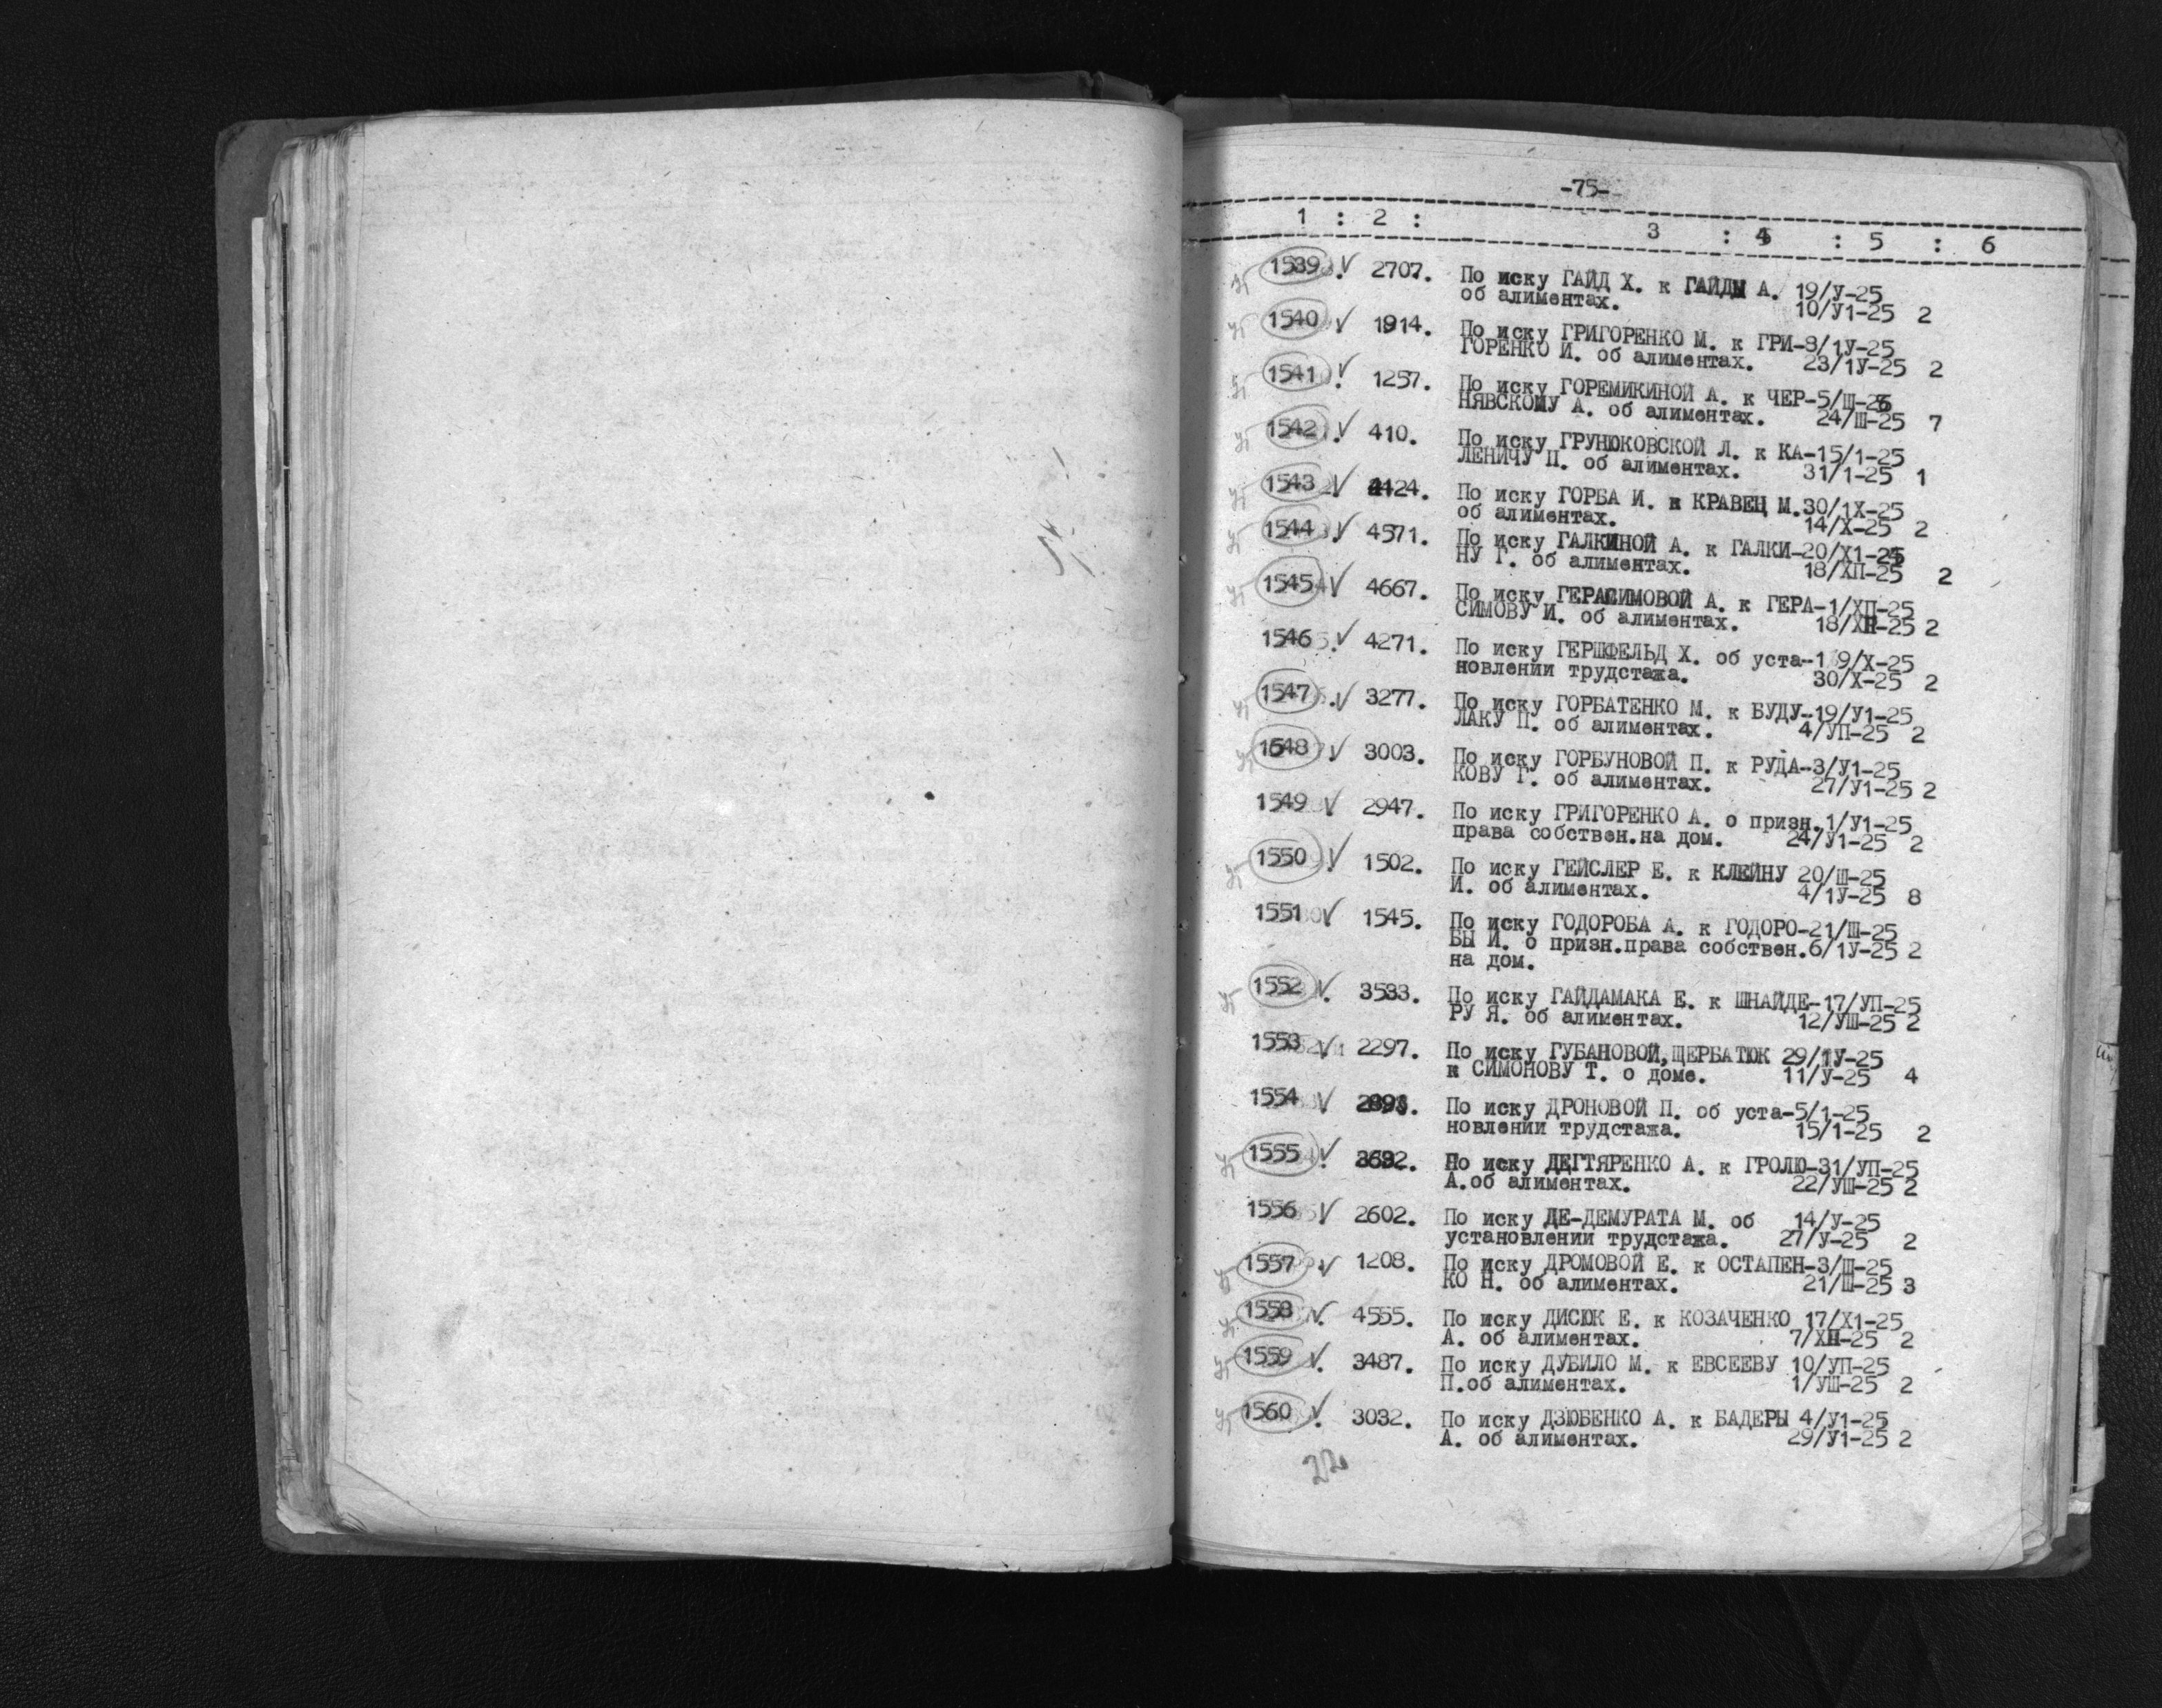 -75-
1 : 2 : 3 : 4 : 5 : 6
1539. √ 2707. По иску ГАЙД Х. к ГАЙДЫ А. 19/У-25
об алиментах. 10/У1-25 2
1540 √ 1914. По иску ГРИГОРЕНКО М. к ГРИ-8/1У-25
ГОРЕНКО И. об алиментах. 23/1У-25 2
1541. √ 1257. По иску ГОРЕМИКИНОЙ А. к ЧЕР-5/Ш-25
НЯВСКОМУ А. об алиментах. 24/Ш-25 7
1542. √ 410. По иску ГРУНЮКОВСКОЙ Л. к КА-15/1-25
ЛЕНИЧУ П. об алиментах. 31/1-25 1
1543 √ 4124. По иску ГОРБА И. к КРАВЕЦ М.30/1Х-25
об алиментах. 14/Х-25 2
1544. √ 4571. По иску ГАЛКИНОЙ А. к ГАЛКИ-20/Х1-25
НУ Г. об алиментах. 18/ХП-25 2
1545 √ 4667. По иску ГЕРАСИМОВОЙ А. к ГЕРА-1/ХП-25
СИМОВУ И. об алиментах. 18/ХП-25 2
1546. √ 4271. По иску ГЕРШФЕЛЬД Х. об уста-19/Х-25
новлении трудстажа. 30/Х-25 2
1547. √ 3277. По иску ГОРБАТЕНКО М. к БУДУ-19/У1-25
ЛАКУ П. об алиментах. 4/УП-25 2
1548 √ 3003. По иску ГОРБУНОВОЙ П. к РУДА-3/У1-25
КОВУ Г. об алиментах. 27/У1-25 2
1549 √ 2947. По иску ГРИГОРЕНКО А. о призн.1/У1-25
права собствен.на дом. 24/У1-25 2
1550. √ 1502. По иску ГЕЙСЛЕР Е. к КЛЕЙНУ 20/Ш-25
И. об алиментах. 4/1У-25 8
1551 √ 1545. По иску ГОДОРОБА А. к ГОДОРО-21/Ш-25
БЫ И. о призн.права собствен.6/1У-25 2
на дом.
1552. √ 3533. По иску ГАЙДАМАКА Е. к ШНАЙДЕ-17/УП-25
РУ Я. об алиментах. 12/УШ-25 2
1553 √ 2297. По иску ГУБАНОВОЙ,ЩЕРБАТЮК 29/1У-25
к СИМОНОВУ Т. о доме. 11/У-25 4
1554 √ По иску ДРОНОВОЙ П. об уста-5/1-25
новлении трудстажа. 15/1-25 2
1555. √ По иску ДЕГТЯРЕНКО А. к ГРОЛЮ-31/УП-25
А.об алиментах. 22/УШ-25 2
1556 √ 2602. По иску ДЕ-ДЕМУРАТА М. об 14/У-25
установлении трудстажа. 27/У-25 2
1557. √ 1208. По иску ДРОМОВОЙ Е. к ОСТАПЕН-3/Ш-25
КО Н. об алиментах. 21/Ш-25 3
1558 √. 4555. По иску ДИСЮК Е. к КОЗАЧЕНКО 17/Х1-25
А. об алиментах. 7/ХП-25 2
1559 √. 3487. По иску ДУБИЛО М. к ЕВСЕЕВУ 10/УП-25
П.об алиментах. 1/УШ-25 2
1560 √. 3032. По иску ДЗЮБЕНКО А. к БАДЕРЫ 4/У1-25
А. об алиментах. 29/У1-25 2